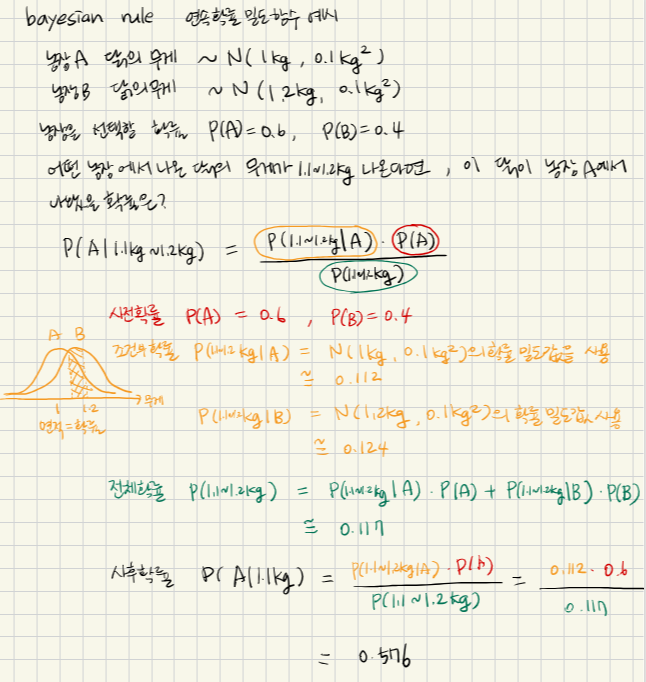 bayesian rule 연속확률 밀도함수 예시
농장A 닭의 무게 ~ N(1kg, 0.1kg²)
농장B 닭의무게 ~ N(1.2kg, 0.1kg²)
농장을 선택할 확률 P(A)=0.6, P(B)=0.4
어떤 농장에서 나온 닭의 무게가 1.1~1.2kg 나온다면, 이 닭이 농장A에서
나왔을 확률은?
P(A|1.1kg~1.2kg) = P(1.1~1.2kg|A)·P(A)
P(1.1~1.2kg)
사전확률 P(A) = 0.6, P(B)=0.4
A B
조건부확률 P(1.1~1.2kg|A) = N(1kg, 0.1kg²)의 확률 밀도값을 사용
≅ 0.112
1 1.2 → 무게
면적=확률
P(1.1~1.2kg|B) = N(1.2kg, 0.1kg²)의 확률 밀도값 사용
≅ 0.124
전체확률 P(1.1~1.2kg) = P(1.1~1.2kg|A)·P(A) + P(1.1~1.2kg|B)·P(B)
≅ 0.117
사후확률 P(A|1.1kg) = P(1.1~1.2kg|A)·P(A) = 0.112·0.6
P(1.1~1.2kg) 0.117
= 0.576